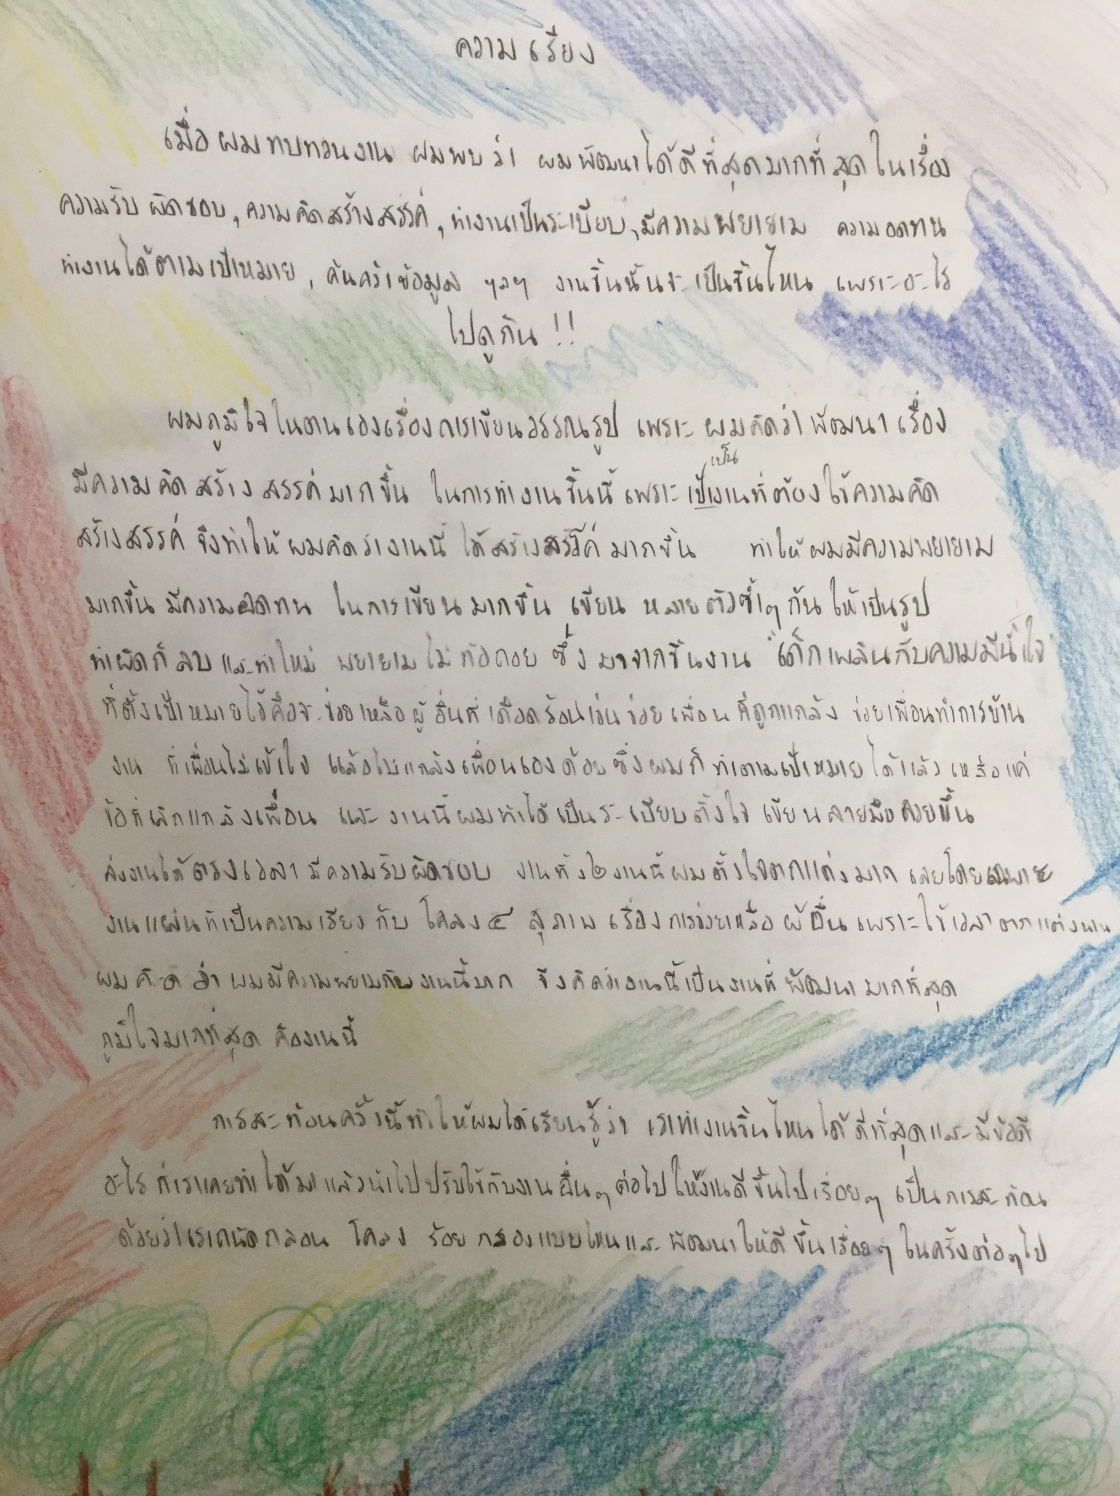 ความเรียง
เมื่อผมทบทวนงาน ผมพบว่า ผมพัฒนาได้ดีที่สุดมากที่สุดในเรื่อง
ความรับผิดชอบ, ความคิดสร้างสรรค์, ทำงานเป็นระเบียบ, มีความพยายาม ความอดทน
ทำงานได้ตามเป้าหมาย, ค้นคว้าข้อมูล ฯลฯ งานชิ้นนั้นจะเป็นชิ้นไหน เพราะอะไร
ไปดูกัน !!
ผมภูมิใจในตนเองเรื่องการเขียนวรรณรูป เพราะ ผมคิดว่าพัฒนาเรื่อง
มีความคิดสร้างสรรค์มากขึ้น ในการทำงานชิ้นนี้ เพราะเป็นงานที่ต้องใช้ความคิด
สร้างสรรค์ จึงทำให้ผมคิดว่างานนี้ ได้สร้างสรรค์มากขึ้น ทำให้ผมมีความพยายาม
มากขึ้น มีความอดทน ในการเขียนมากขึ้น เขียน หลายตัวซ้ำๆกันให้เป็นรูป
ทำผิดก็ลบและทำใหม่ พยายามไม่ท้อถอย ซึ่งมาจากชิ้นงาน "เด็กเพลินกับความมีน้ำใจ"
ที่ตั้งเป้าหมายไว้คือจะช่วยเหลือผู้อื่นที่เดือดร้อนเช่นช่วยเพื่อนที่ถูกแกล้ง ช่วยเพื่อนทำการบ้าน
งาน ที่เพื่อนไม่เข้าใจ แล้วไม่แกล้งเพื่อนเองด้วยซึ่งผมก็ทำตามเป้าหมายได้แล้ว เหลือแค่
ข้อที่เลิกแกล้งเพื่อน และงานนี้ผมทำได้เป็นระเบียบตั้งใจเขียนลายมือสวยขึ้น
ส่งงานได้ตรงเวลา มีความรับผิดชอบ งานทั้ง๒งานนี้ผมตั้งใจตกแต่งมาก เลยโดยเฉพาะ
งานแผ่นที่เป็นความเรียงกับ โคลง ๔ สุภาพ เรื่องการช่วยเหลือผู้อื่นเพราะใช้เวลาตกแต่งนาน
ผมคิดว่าผมมีความพยามกับงานนี้มาก จึงคิดว่างานนี้เป็นงานที่พัฒนามากที่สุด
ภูมิใจมากที่สุด คืองานนี้
การสะท้อนครั้งนี้ทำให้ผมได้เรียนรู้ว่า เราทำงานชิ้นไหนได้ดีที่สุดและมีข้อดี
อะไร ที่เราเคยทำได้มาแล้วนำไปปรับใช้กับงานอื่นๆต่อไปให้งานดีขึ้นไปเรื่อยๆ เป็นการสะท้อน
ด้วยว่าเราถนัดกลอน โคลง ร้อยกรองแบบไหนและพัฒนาให้ดีขึ้นเรื่อยๆในครั้งต่อๆไป